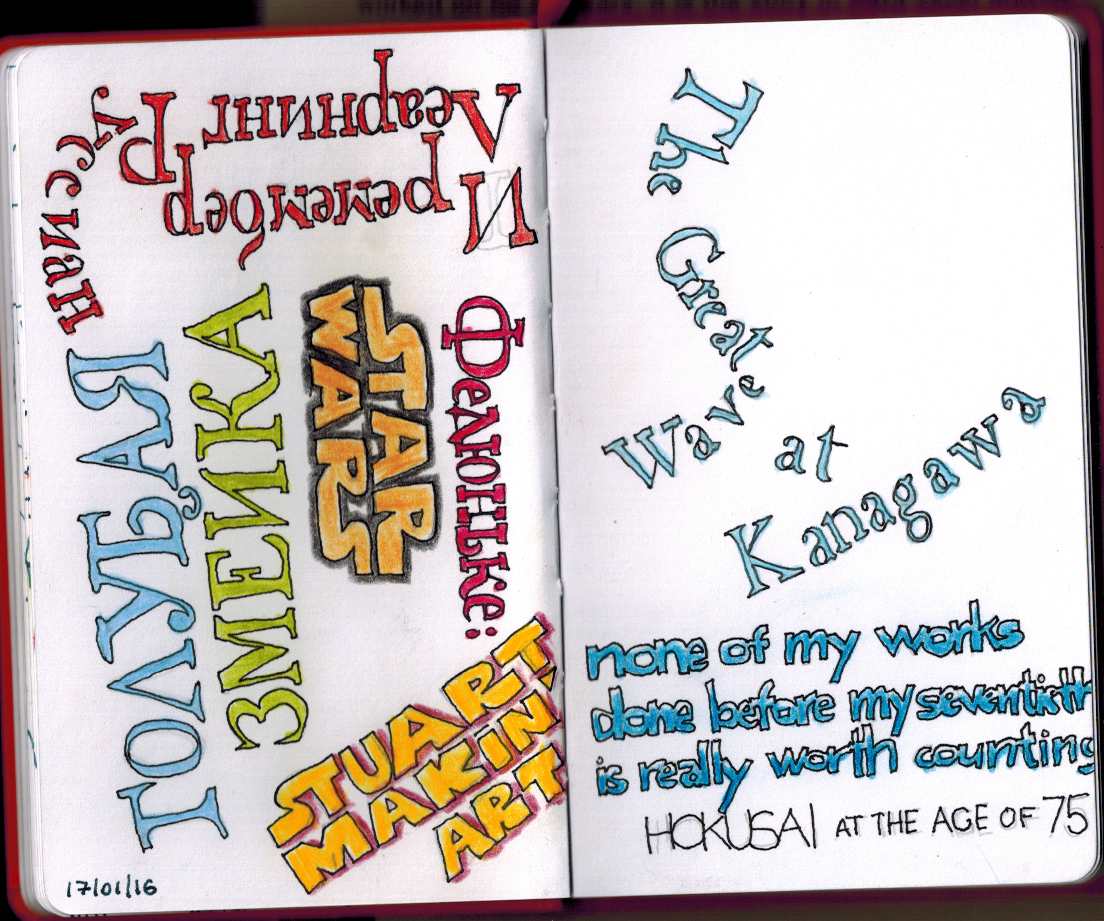 И ремембер
Леарнинг
Руссиан
ГОЛУБАЯ
ЗМЕИКА
STAR
WARS
Фелюньке:
STUART
MAKIN
ART
17/01/16
The Great
Wave at
Kanagawa
none of my works
done before my seventieth
is really worth counting
HOKUSAI AT THE AGE OF 75